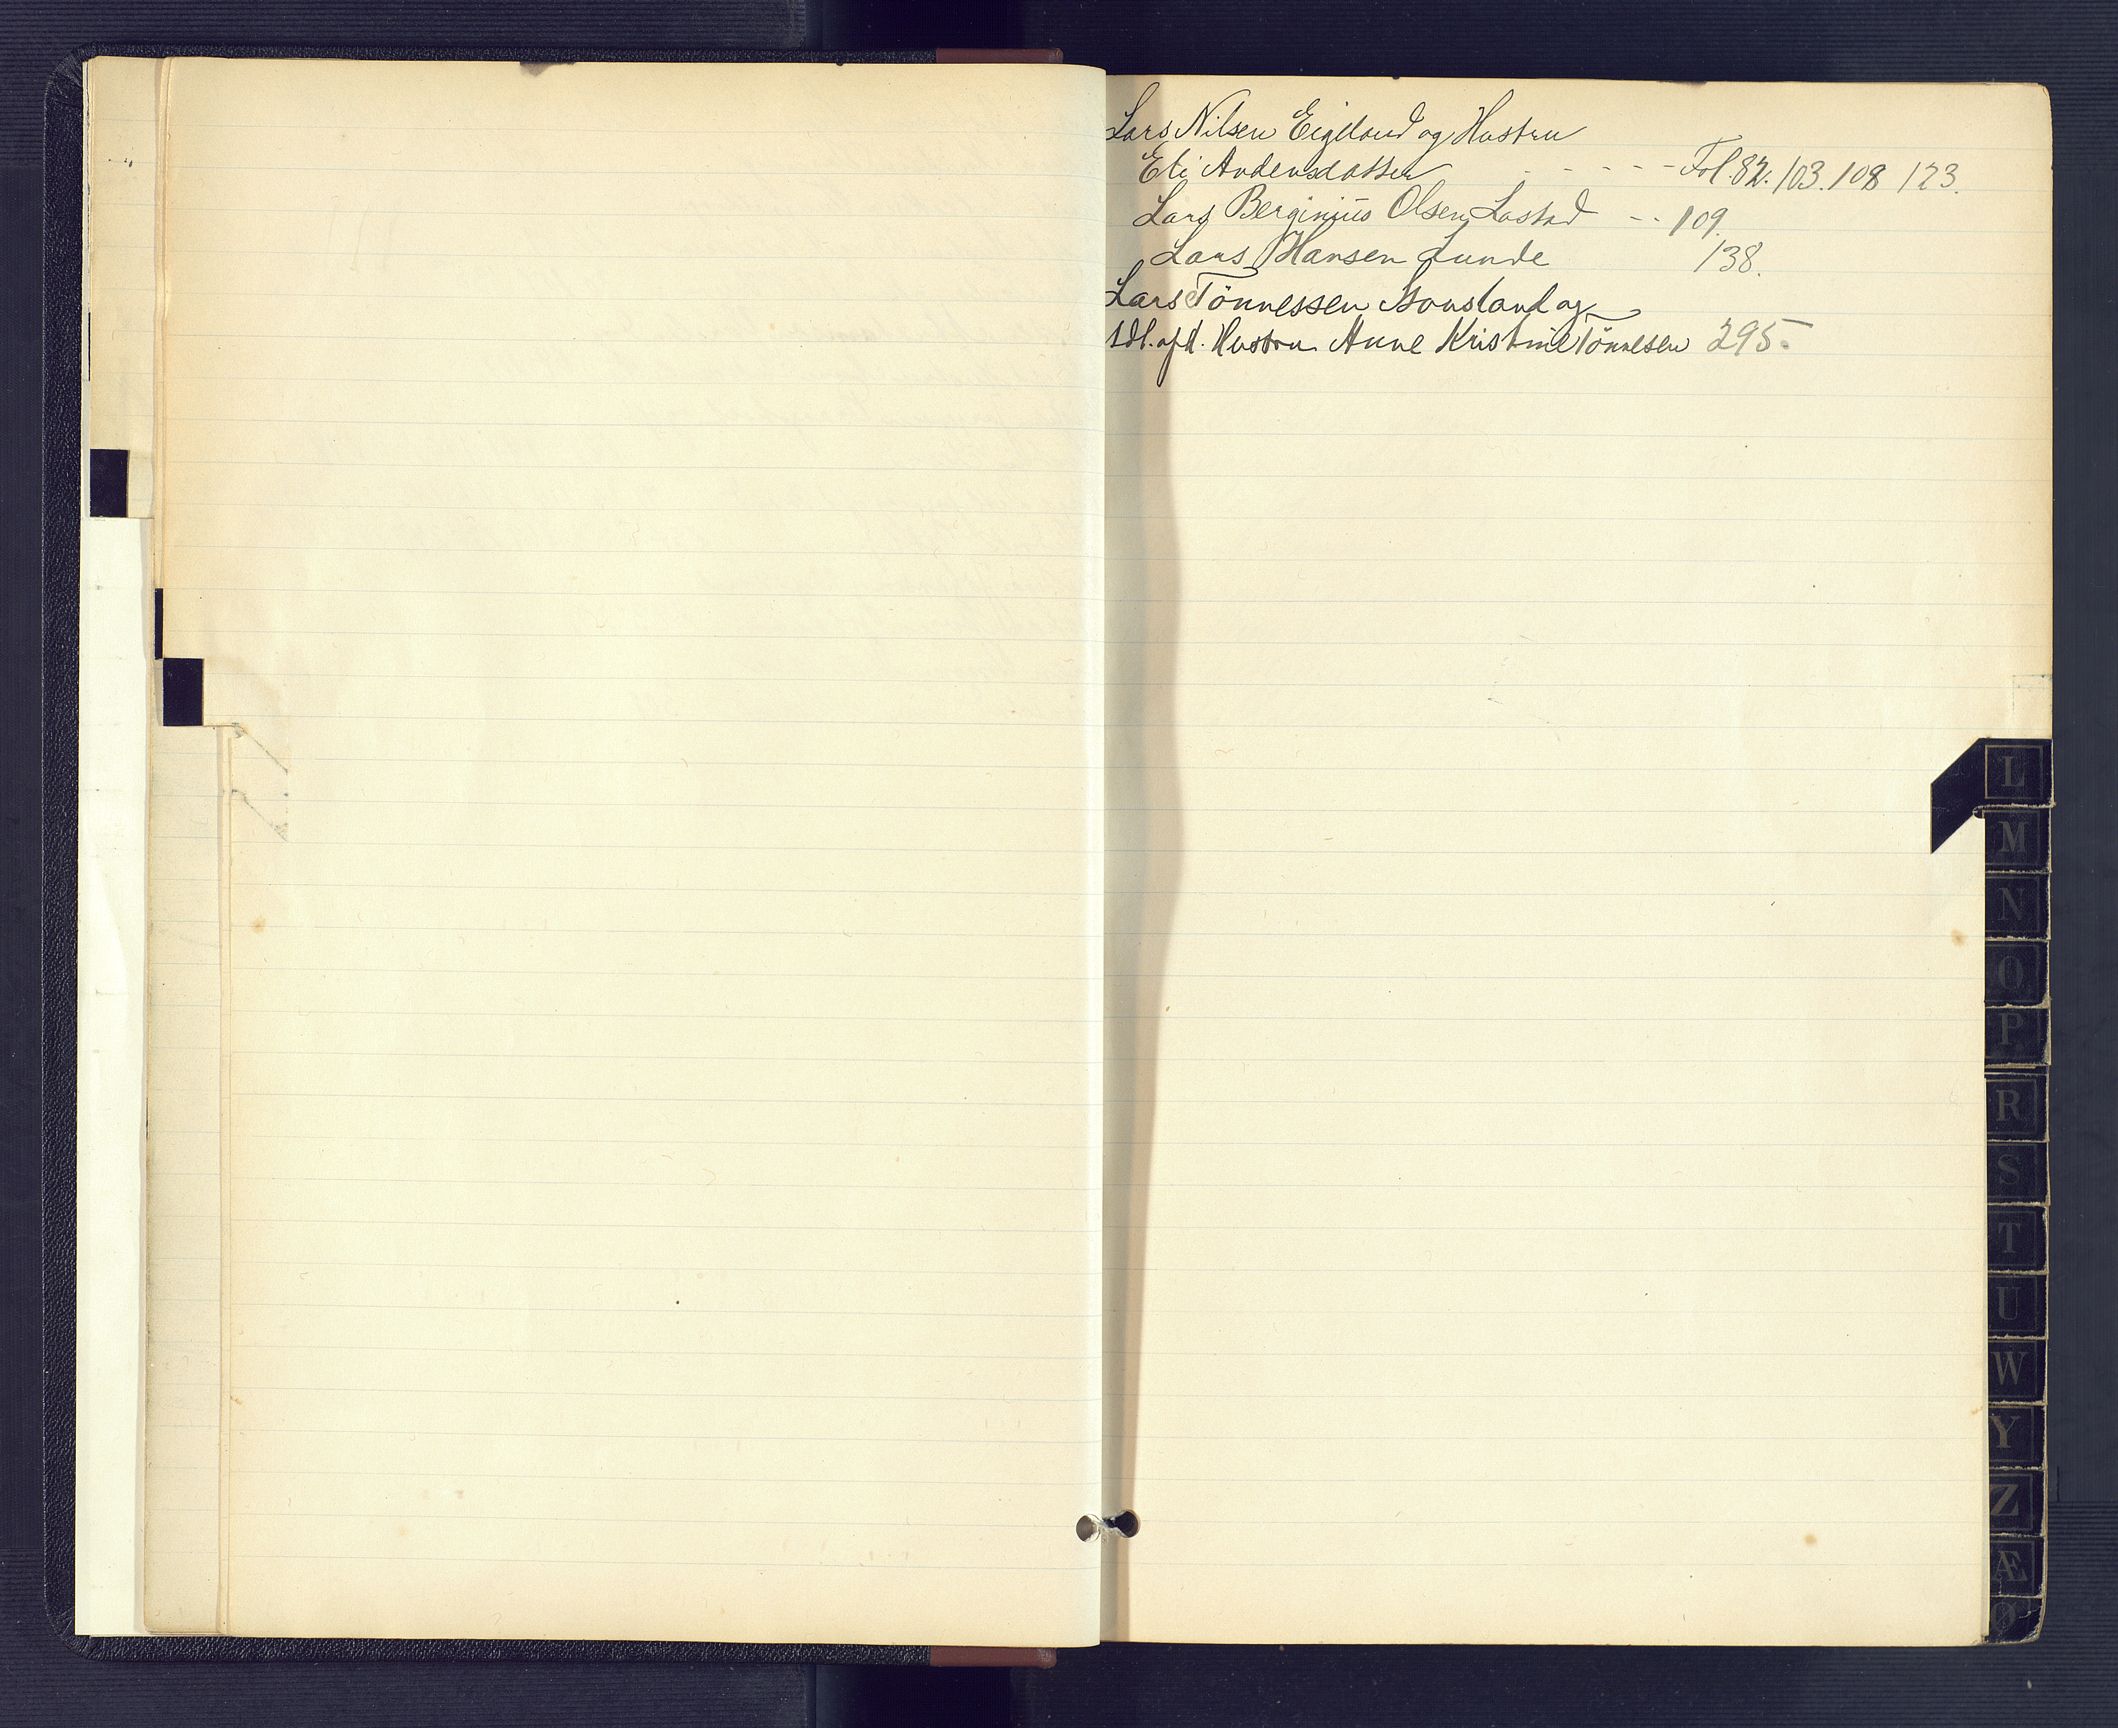 Lars Nilsen Eigeland og Hustru
Eli Andersdatter - - - - Fol. 82. 103. 108 123.
Lars Berginius Olsen Lastad - - 109.
Lars Hansen Lunde 138.
Lars Tönnessen og
afd. Hustru Anne Kristine Tönnesen 295.
L
M
N
O
P
R
S
T
U
W
Y
Z
Æ
Ø